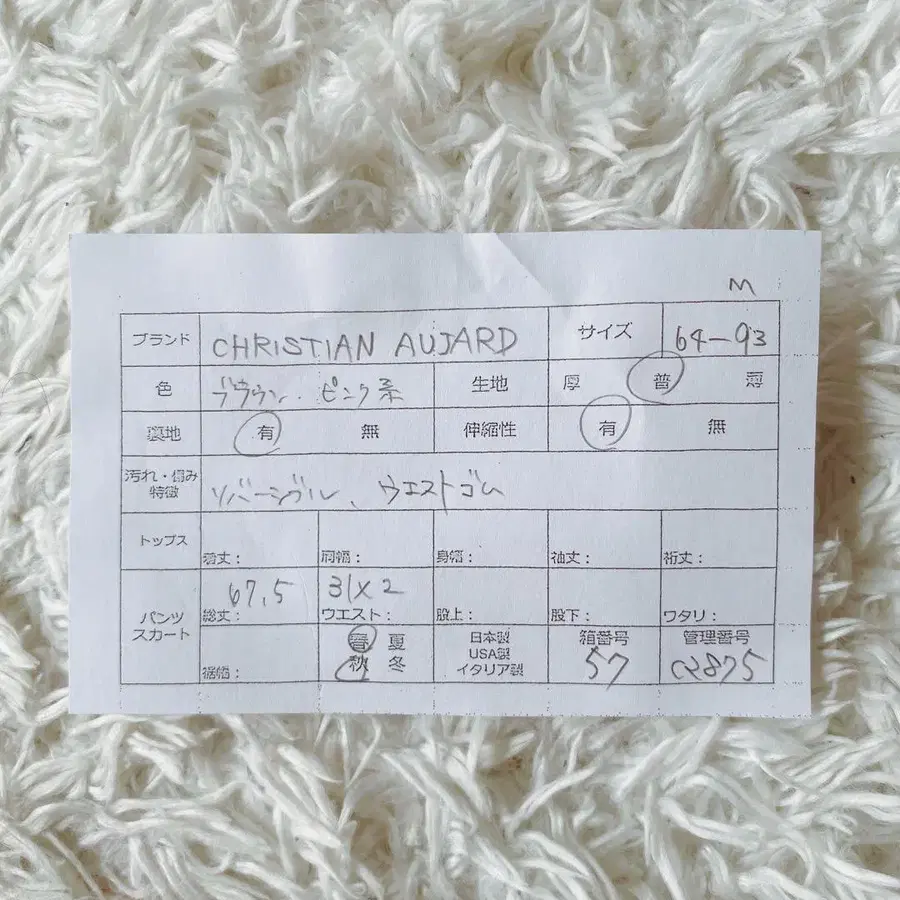 M
ブランド CHRISTIAN AUJARD サイズ 64-93
色 ブラウン、ピンク系 生地 厚 普 薄
裏地 有 無 伸縮性 有 無
汚れ・傷み
特徴 リバーシブル、ウエストゴム
トップス 着丈: 肩幅: 身幅: 袖丈: 裄丈:
パンツ
スカート
67.5 31×2
総丈: ウエスト: 股上: 股下: ワタリ:
裾幅: 春 夏 秋 冬 日本製 USA製 イタリア製 箱番号 57 管理番号 C2875